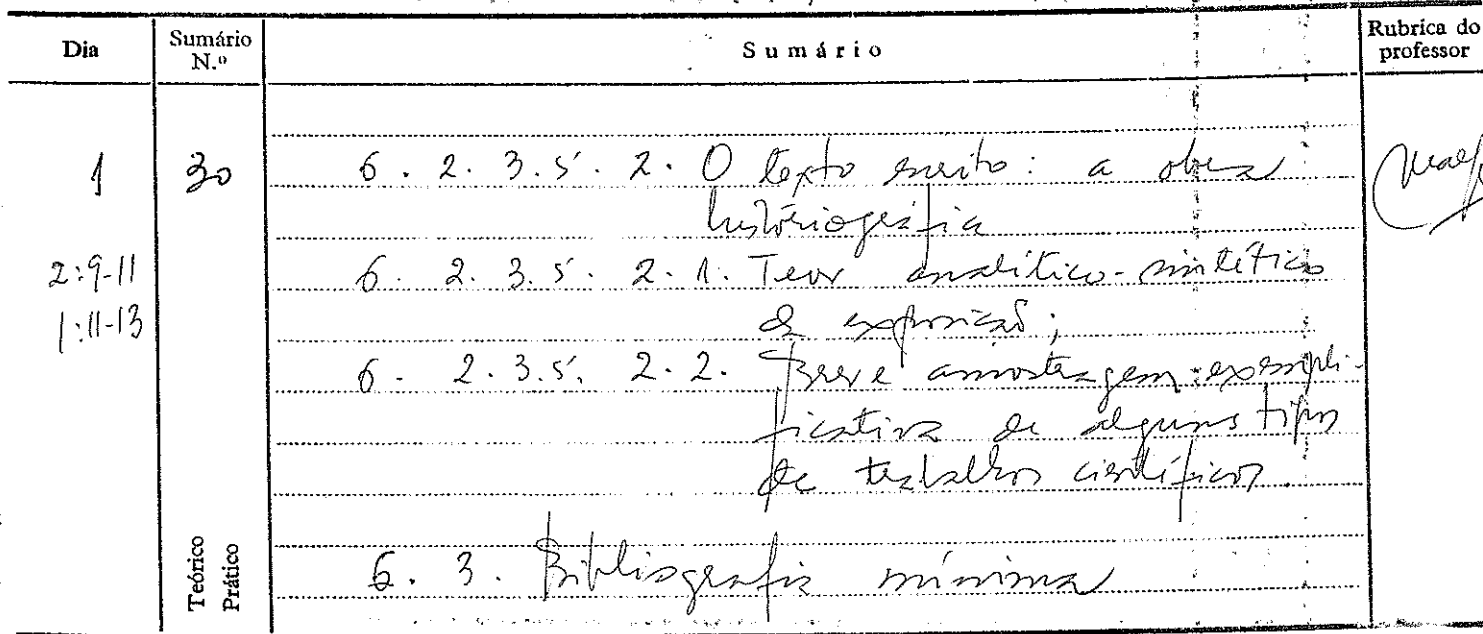 Dia Sumário N.º Sumário Rubrica do professor
1 30 6. 2. 3. 5. 2. O texto escrito: a obra
historiográfica
2:9-11 6. 2. 3. 5. 2. 1. Teor analítico-sintético
1:11-13 da exposição;
6. 2. 3. 5. 2. 2. Breve amostragem exempli-
ficativa de alguns tipos
de trabalhos científicos.
Teórico
Prático
6. 3. Bibliografia mínima